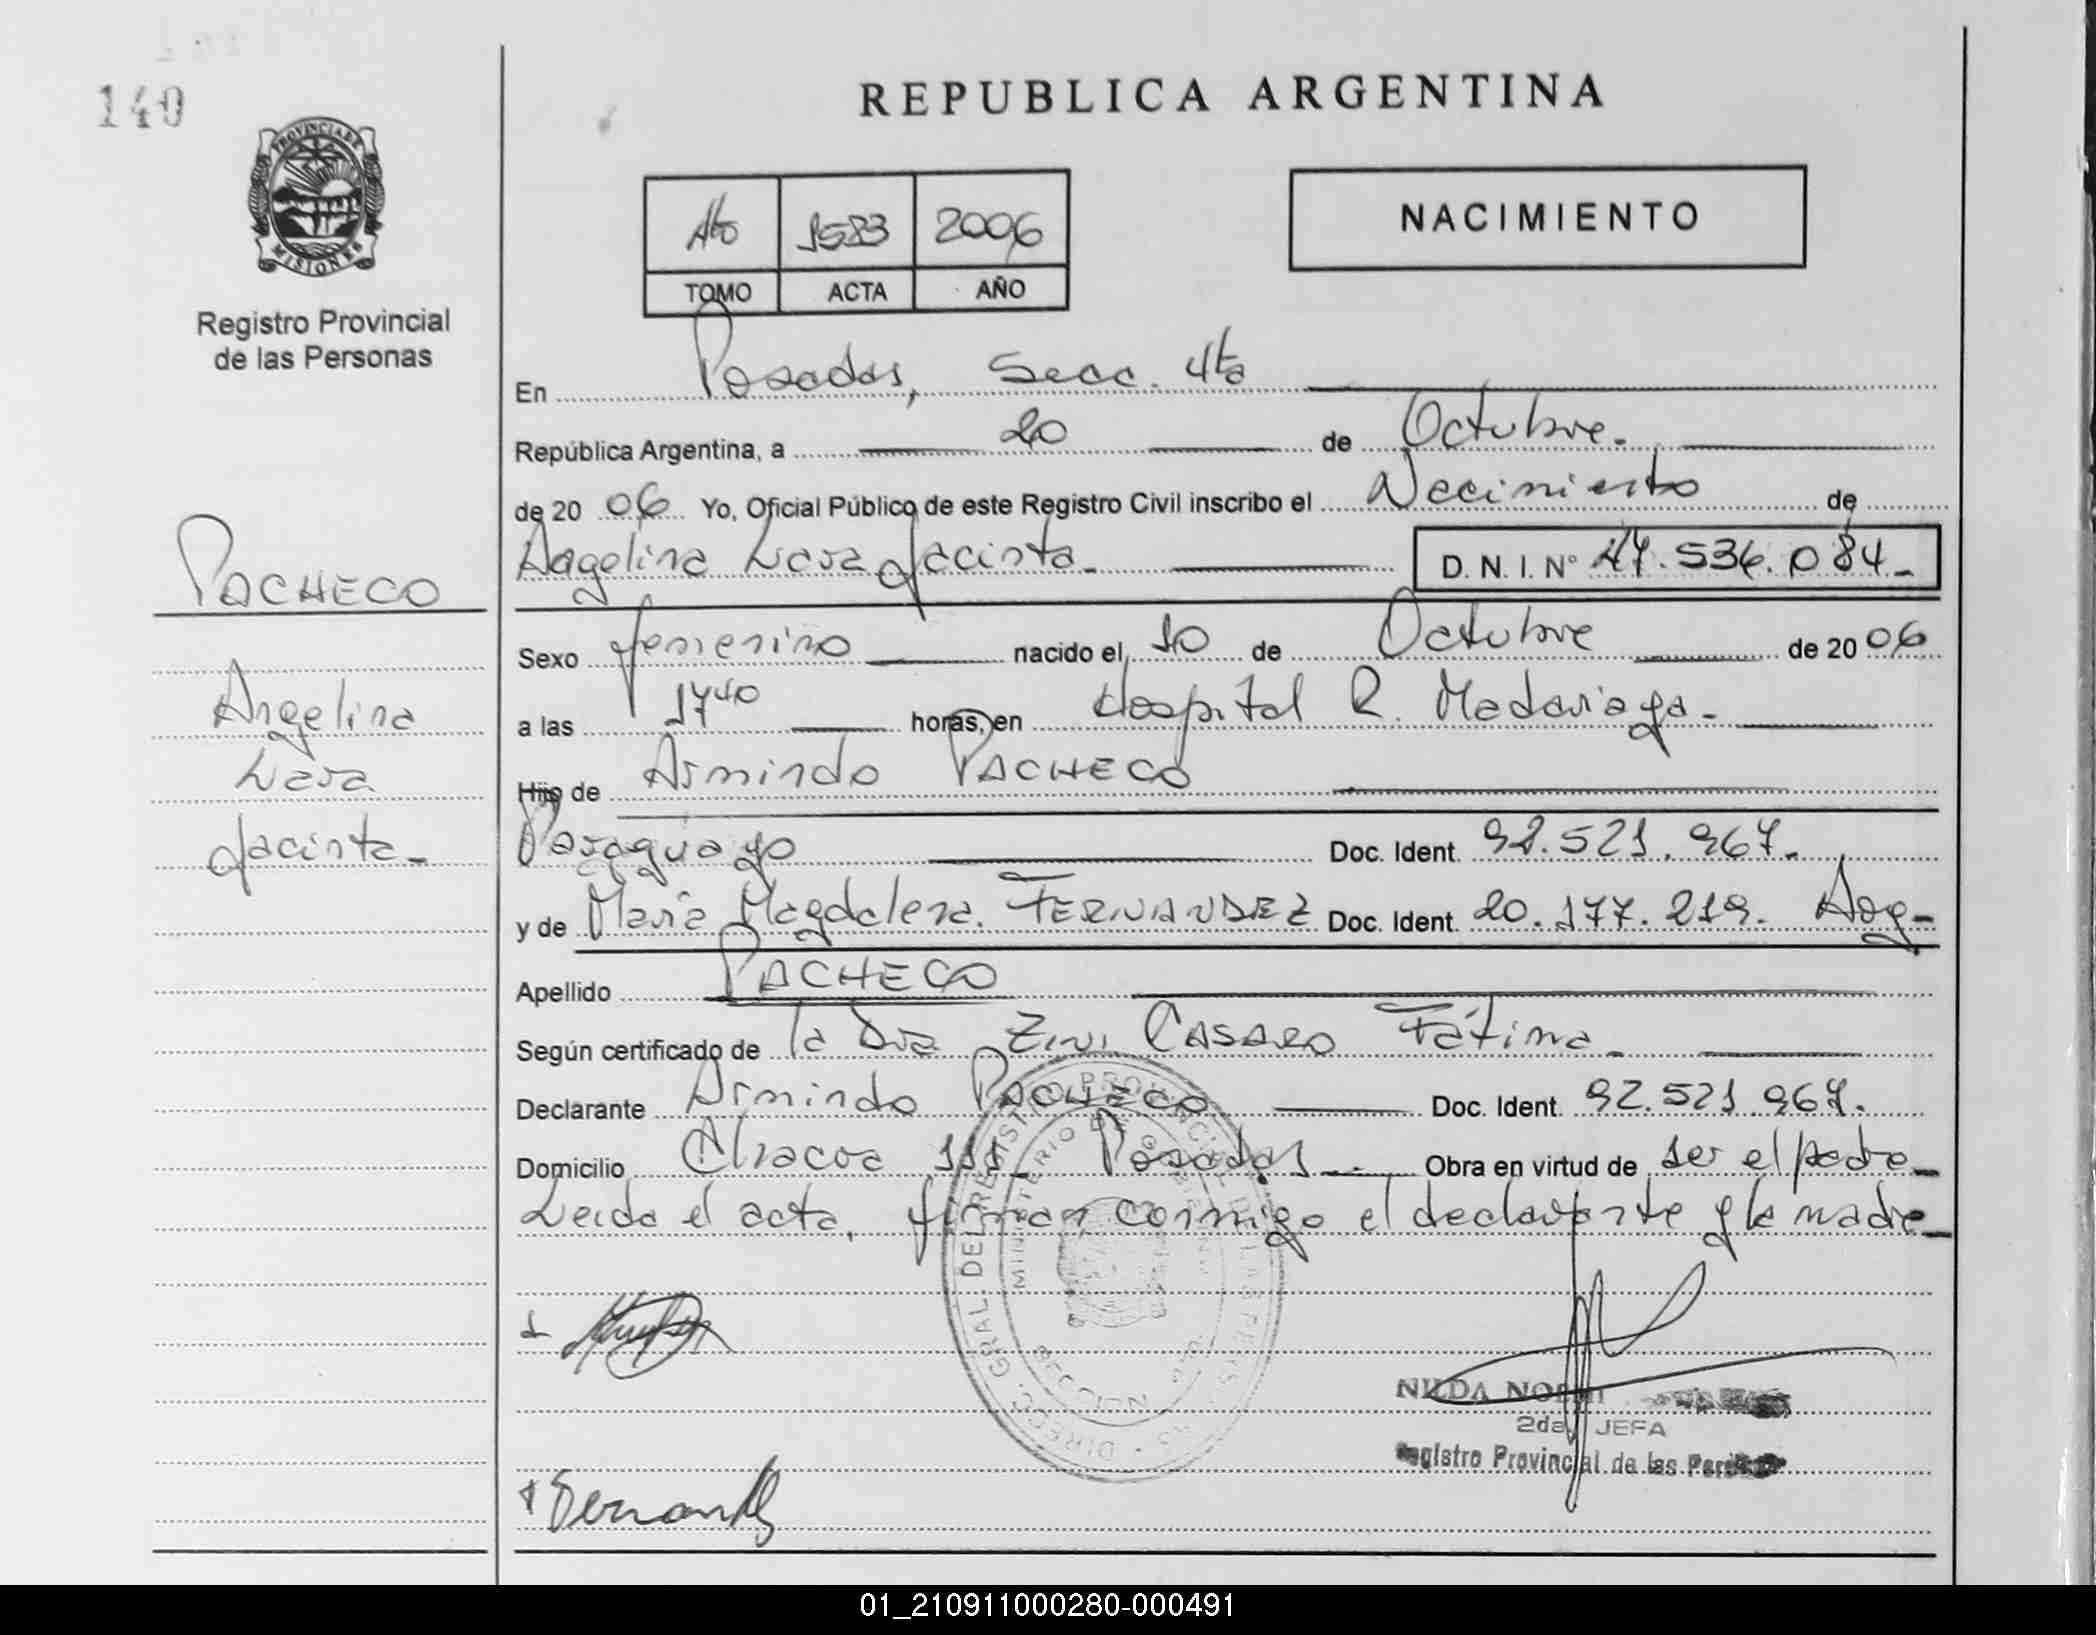 140
REPUBLICA ARGENTINA
PROVINCIA DE
MISIONES
Registro Provincial
de las Personas
4to 1583 2006
TOMO ACTA AÑO
NACIMIENTO
En Posadas, Secc. 4ta
República Argentina, a 20 de Octubre.
de 20 06 Yo, Oficial Público de este Registro Civil inscribo el Nacimiento de
Angelina Lara Jacinta. D. N. I. Nº 47.536.084.-
PACHECO
Angelina
Lara
Jacinta.-
Sexo femenino nacido el 10 de Octubre de 20 06
a las 17 40 horas, en Hospital R. Madariaga.-
Hijo de Armindo PACHECO
Paraguayo Doc. Ident. 92.521.967.
y de María Magdalena. FERNANDEZ Doc. Ident. 20.177.219. Arg.-
Apellido PACHECO
Según certificado de la Dra Zini CASARO Fátima.
Declarante Armindo PACHECO Doc. Ident. 92.521.967.
Domicilio Chacra 111 Posadas.- Obra en virtud de ser el padre.-
Leída el acta, firman conmigo el declarante y la madre.-
DIRECC. GRAL. DEL REGISTRO PROVINCIAL DE LAS PERSONAS
MINISTERIO DE GOBIERNO
Fernandez
NILDA NOEMI
2da JEFA
Registro Provincial de las Personas
01_210911000280-000491